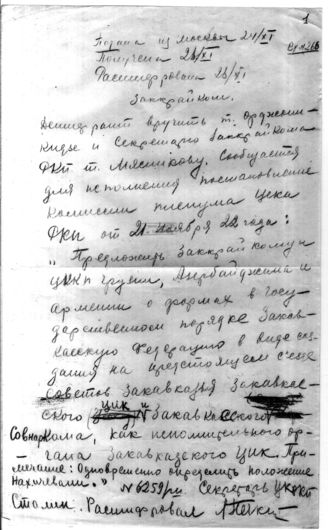 1
Подана из Москвы 24/XI
Получена 26/XI
Расшифрована 26/XI
Заккрайком.
вручить т. Орджони-
кидзе и Секретарю Заккрайкома
РКП т. Мясникову. Сообщается
для исполнения постановление
Комиссии пленума Цека
РКП от 21 ноября 22 года:
„Предложить Заккрайкому и
ЦККП Грузии, Азербайджана и
Армении о формах в госу-
дарственном порядке Закав-
казскую Федерацию в виде соз-
дания на предстоящем съезде
советов Закавказья Закавказ-
ского ЦИК и Закавказского
Совнаркома, как исполнительного ор-
гана Закавказского ЦИК. При-
мечание: Одновременно определить положение
Нахичевани." № 6259/ш Секретарь ЦКРКП
Сталин. Расшифровал